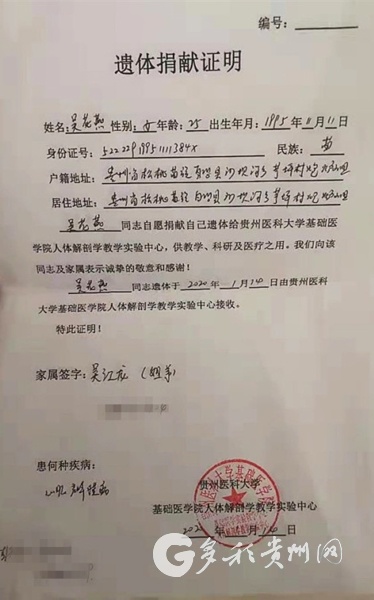 编号:
遗体捐献证明
姓名:吴花燕 性别:女 年龄:25 出生年月:1995年11月11日
身份证号: 52222919951111384X 民族: 苗
户籍地址:贵州省松桃苗
居住地址:贵州省松桃苗
吴花燕 同志自愿捐献自己遗体给贵州医科大学基础医
学院人体解剖学教学实验中心,供教学、科研及医疗之用。我们向该
同志及家属表示诚挚的敬意和感谢!
吴花燕 同志遗体于 2020年 1月14日由贵州医科
大学基础医学院人体解剖学教学实验中心接收。
特此证明!
家属签字:吴江龙
患何种疾病:
贵州医科大学
基础医学院人体解剖学教学实验中心
年 月 日
多彩贵州网